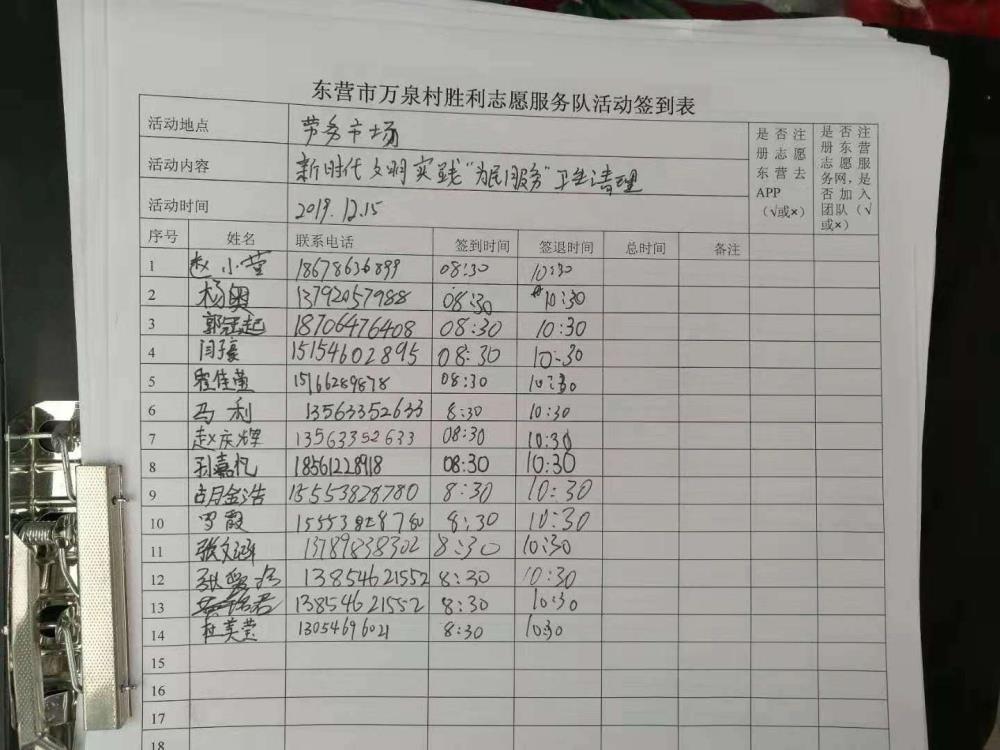 东营市万泉村胜利志愿服务队活动签到表
活动地点 劳务市场
是否注册志愿东营去APP（√或×）
是否注册东营志愿服务网，是否加入团队（√或×）
活动内容 新时代文明实践“为民服务”卫生清理
活动时间 2019.12.15
序号 姓名 联系电话 签到时间 签退时间 总时间 备注
1 赵小莹 18678636899 08:30 10:30
2 杨奥 13792057988 08:30 10:30
3 郭冠起 18706476408 08:30 10:30
4 闫子豪 15154602895 08:30 10:30
5 翟佳萱 15166289878 08:30 10:30
6 马利 13563352633 8:30 10:30
7 赵庆辉 13563352633 08:30 10:30
8 孙嘉忆 18561228918 08:30 10:30
9 胡金浩 15553828780 8:30 10:30
10 罗霞 15553828780 8:30 10:30
11 张文涵 13789838302 8:30 10:30
12 张 13854621552 8:30 10:30
13 13854621552 8:30 10:30
14 杜美莹 13054696021 8:30 10:30
15
16
17
18